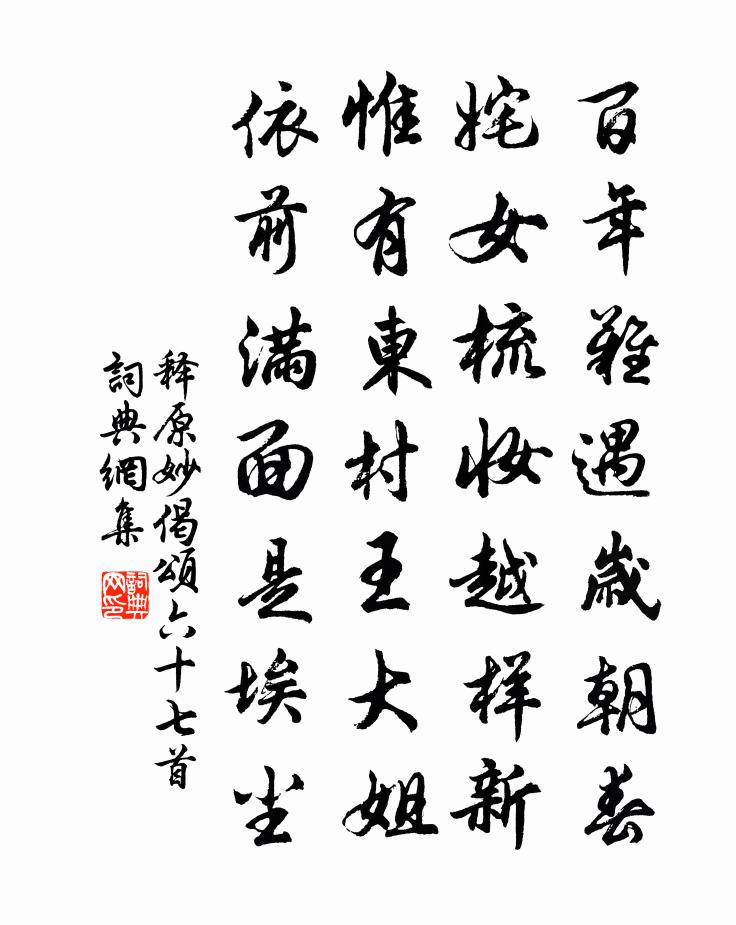 百年難遇歲朝春
姹女梳妝越樣新
惟有東村王大姐
依前滿面是埃尘
释原妙偈頌六十七首
詞典網集
詞典网印